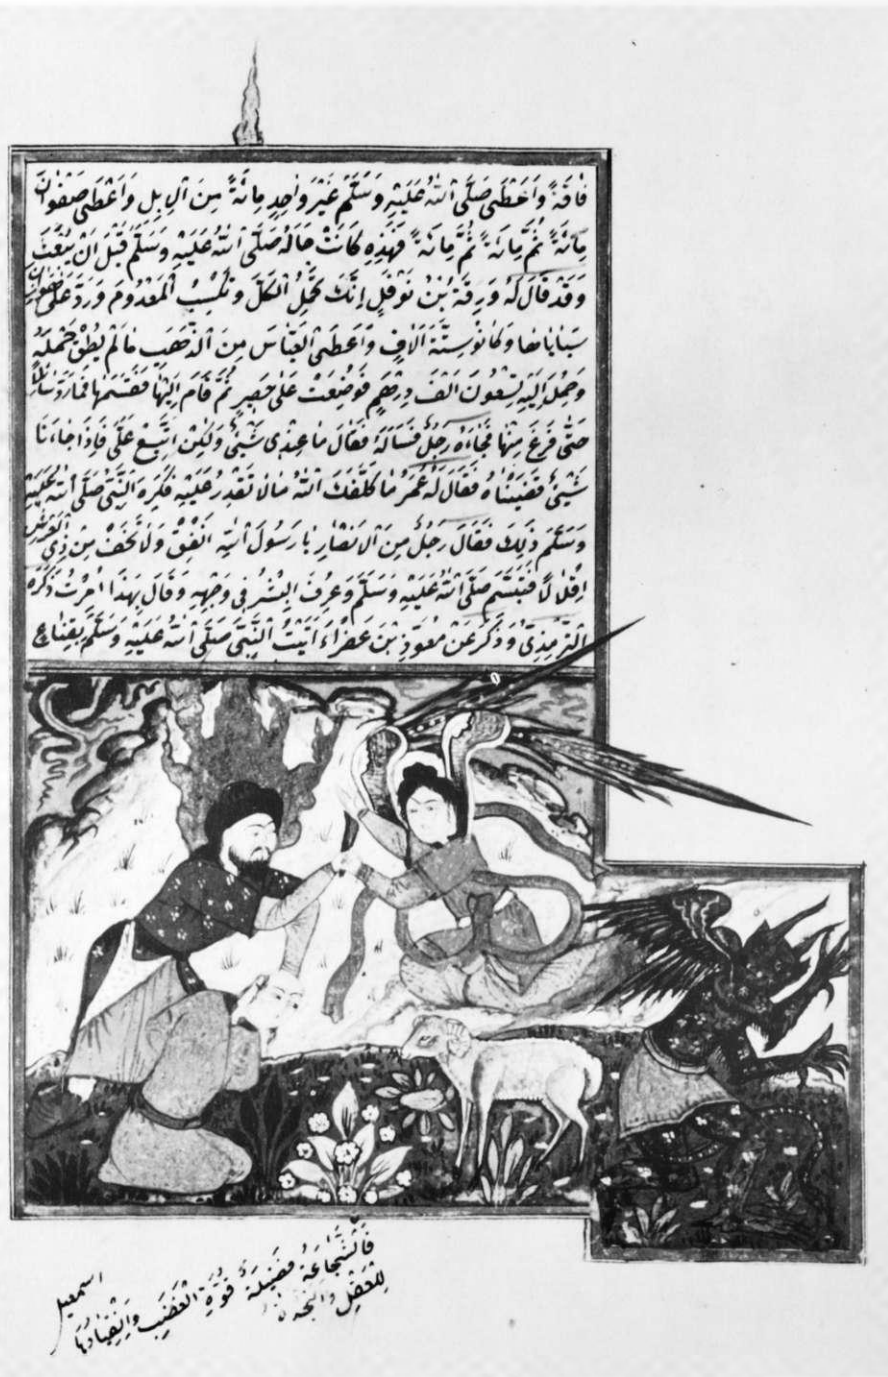 فَاقَةً وَاَعْطَى صَلَّى اللهُ عَلَيْهِ وَسَلَّمَ غَيْرَ وَاحِدٍ مِائَةً مِنَ الْاِبِلِ وَاَعْطَى صَفْوَانَ
مِائَةً ثُمَّ مِائَةً ثُمَّ مِائَةً فَهَذِهِ كَانَتْ حَالُهُ صَلَّى اللهُ عَلَيْهِ وَسَلَّمَ قَبْلَ اَنْ يُبْعَثَ
وَقَدْ قَالَ لَهُ وَرِقَةُ بْنُ نَوْفَلٍ اِنَّكَ تَحْمِلُ الْكَلَّ وَتَكْسِبُ الْمَعْدُومَ وَرَدَّ عَلَى هَوَازِنَ
سَبَايَاهَا وَكَانُوسِتَّةَ اَلَافٍ وَاَعْطَى الْعَبَّاسَ مِنَ الذَّهَبِ مَا لَمْ يُطِقْ حَمْلَهُ
وَحُمِلَ اِلَيْهِ تِسْعُونَ اَلْفَ دِرْهَمٍ فَوُضِعَتْ عَلَى حَصِيرٍ ثُمَّ قَامَ اِلَيْهَا فَقَسَمَهَا فَمَا رَدَّ سَائِلًا
حَتَّى فَرَغَ مِنْهَا فَجَاءَهُ رَجُلٌ فَسَأَلَهُ فَقَالَ مَا عِنْدِى شَيْئٌ وَلَكِنْ اِبْتَعْ عَلَىَّ فَاِذَا جَاءَنَا
شَيْئٌ قَضَيْنَاهُ فَقَالَ لَهُ عُمَرُ مَا كَلَّفَكَ اللهُ مَا لَا تَقْدِرُ عَلَيْهِ فَكَرِهَ النَّبِىُّ صَلَّى اللهُ عَلَيْهِ
وَسَلَّمَ ذٰلِكَ فَقَالَ رَجُلٌ مِنَ الْاَنْصَارِ يَا رَسُولَ اللهِ اَنْفِقْ وَلَا تَخَفْ مِنْ ذِى الْعَرْشِ
اِقْلَالًا فَتَبَسَّمَ صَلَّى اللهُ عَلَيْهِ وَسَلَّمَ وَعُرِفَ الْبِشْرُ فِى وَجْهِهِ وَقَالَ بِهَذَا اُمِرْتُ ذَكَرَهُ
التِّرْمِذِىُّ وَذُكِرَ عَنْ مُعَوِّذِ بْنِ عَفْرَاءَ اَتَيْتُ النَّبِىَّ صَلَّى اللهُ عَلَيْهِ وَسَلَّمَ بِقِنَاعٍ
فَالشَّجَاعَةُ فَضِيلَةُ قُوَّةِ الْغَضَبِ وَانْقِيَادُهَا
لِلْعَقْلِ وَالنَّجْدَةُ
اسمعيل